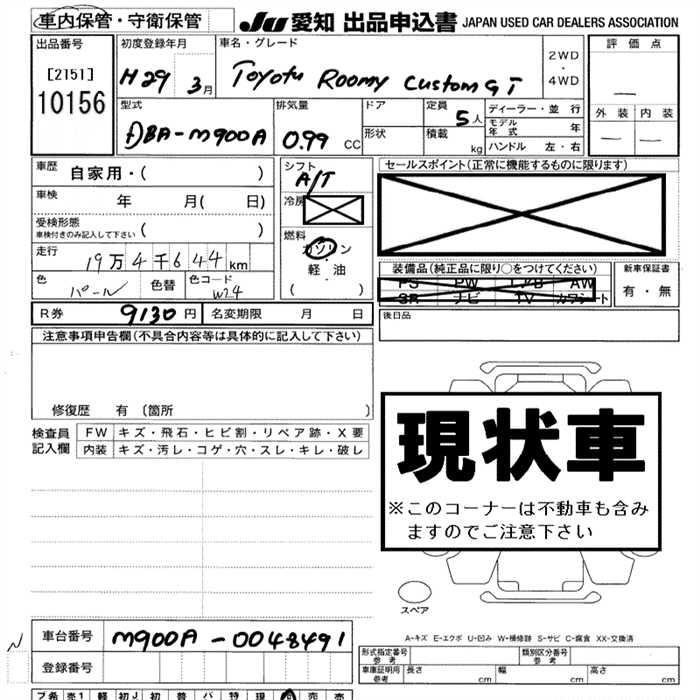 車内保管・守衛保管
JU 愛知 出品申込書 JAPAN USED CAR DEALERS ASSOCIATION
出品番号
[2151]
10156
初度登録年月
H29 3月
車名・グレード
Toyota Roomy Custom G T
2WD
・
4WD
評価点
外装 内装
型式
DBA-M900A
排気量
0.99 CC
ドア
形状
定員
5人
積載 kg
ディーラー・並行
モデル年式 年
ハンドル 左・右
車歴
自家用・( )
車検
年 月( 日)
受検形態
車検付きのみ記入して下さい ( )
走行
19万4千644km
色
パール
色替
色コード
W24
シフト
A/T
冷房
燃料
ガソリン
・
軽油
( )
セールスポイント(正常に機能するものに限ります)
装備品(純正品に限り○をつけてください)
PS PW L/B AW
SR ナビ TV カワシート
新車保証書
有・無
R券 9130円
名変期限 月 日
後日品
注意事項申告欄(不具合内容等は具体的に記入して下さい)
修復歴 有(箇所 )
検査員記入欄
FW キズ・飛石・ヒビ割・リペア跡・X要
内装 キズ・汚レ・コゲ・穴・スレ・キレ・破レ
現状車
※このコーナーは不動車も含み
ますのでご注意下さい
スペア
A-キズ E-エクボ U-凹み W-補修跡 S-サビ C-腐食 XX-交換済
車台番号 M900A-0048491
登録番号
形式指定番号 参考
類別区分番号 参考
車庫証明用 参考 長さ cm 幅 cm 高さ cm